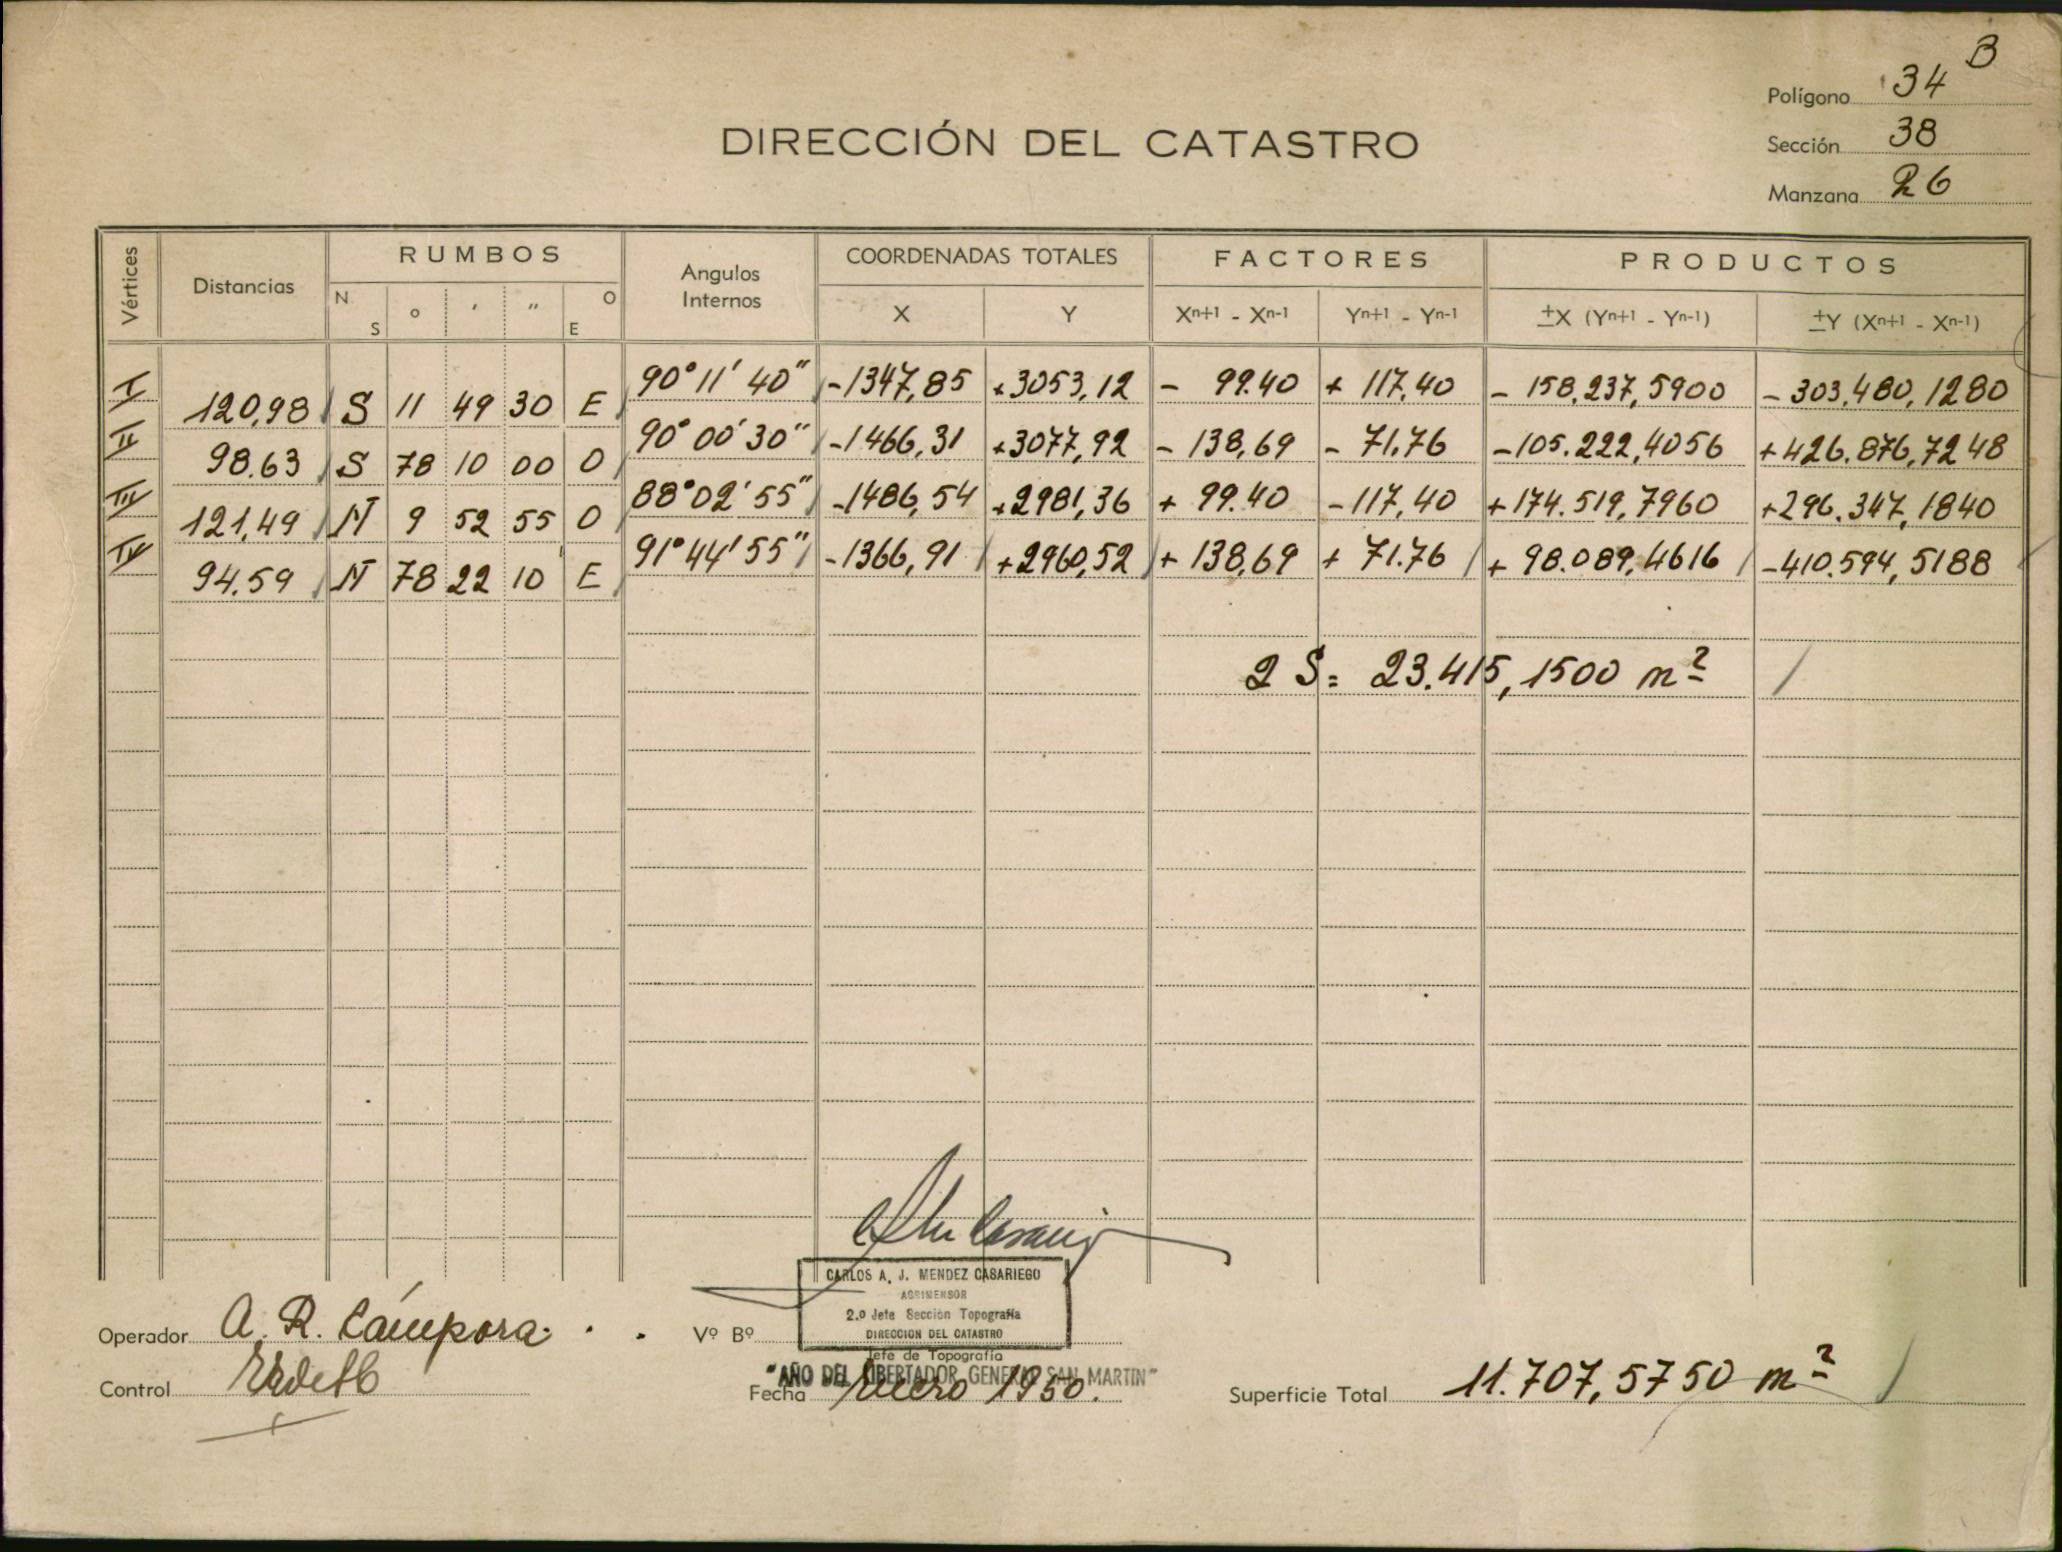 B
Polígono 34
DIRECCIÓN DEL CATASTRO
Sección 38
Manzana 26
Vértices Distancias RUMBOS Angulos Internos COORDENADAS TOTALES FACTORES PRODUCTOS
N S ° ' " O E X Y Xn+1 - Xn-1 Yn+1 - Yn-1 ±X (Yn+1 - Yn-1) ±Y (Xn+1 - Xn-1)
I 90° 11' 40" -1347,85 +3053,12 - 99.40 + 117,40 - 158.237,5900 - 303.480,1280
120,98 S 11 49 30 E
II 90° 00' 30" -1466,31 +3077,92 - 138,69 - 71.76 -105.222,4056 +426.876,7248
98.63 S 78 10 00 O
III 88° 02' 55" -1486,54 +2981,36 + 99.40 -117,40 +174.519,7960 +296.347,1840
121,49 N 9 52 55 O
IV 91° 44' 55" -1366,91 +2960,52 + 138,69 + 71.76 + 98.089,4616 -410.594,5188
94.59 N 78 22 10 E
2 S = 23.415,1500 m²
CARLOS A. J. MENDEZ CASARIEGO
AGRIMENSOR
2.o Jefe Sección Topografía
DIRECCION DEL CATASTRO
Operador A. R. Cámpora Vº Bº
Jefe de Topografía
"AÑO DEL LIBERTADOR GENERAL SAN MARTIN"
Control
Fecha Enero 1950.
Superficie Total 11.707,5750 m²